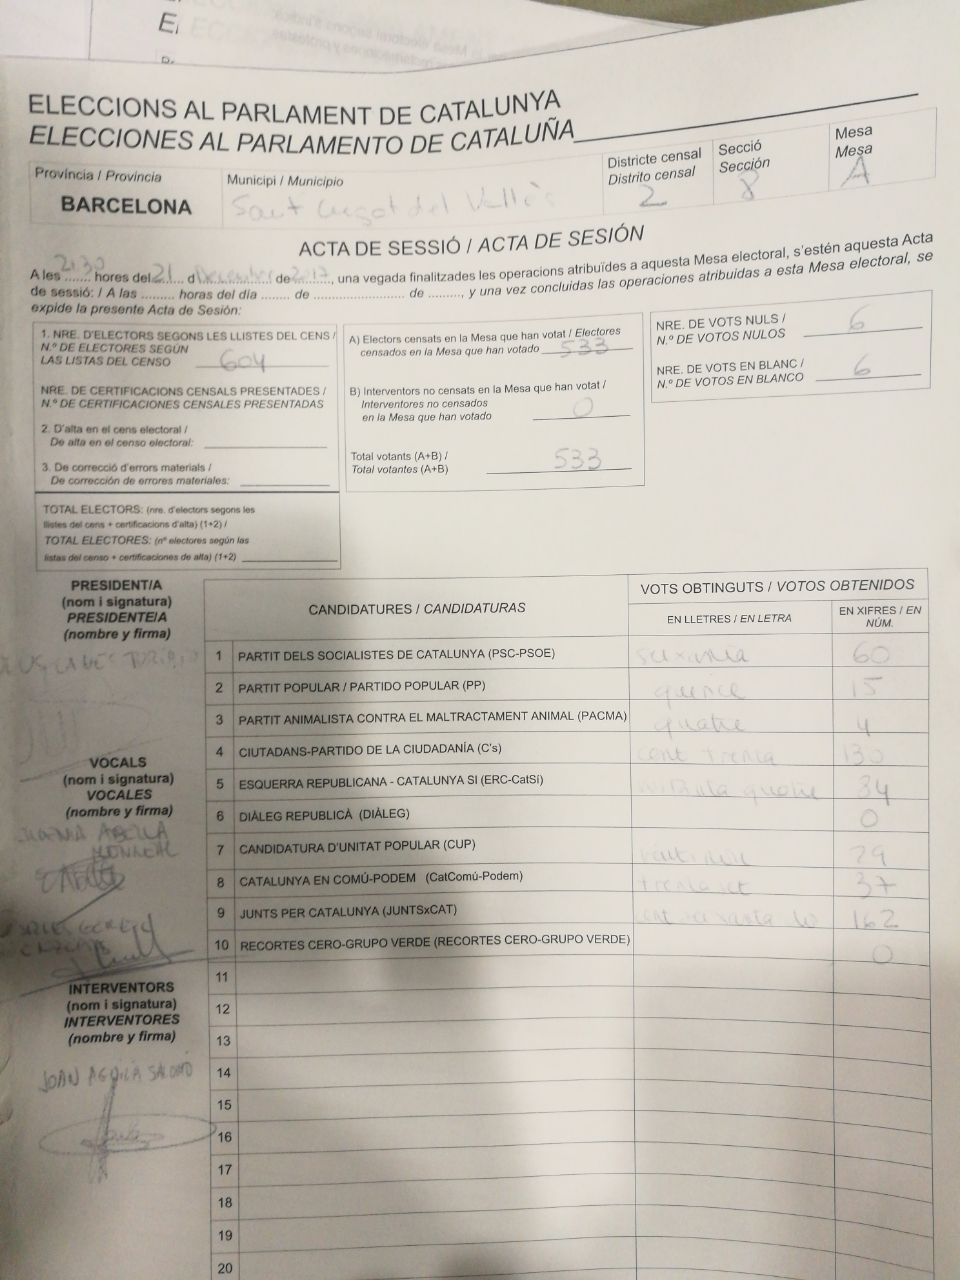 ELECCIONS AL PARLAMENT DE CATALUNYA
ELECCIONES AL PARLAMENTO DE CATALUÑA
Província / Provincia
BARCELONA
Municipi / Municipio
Sant Cugat del Vallès
Districte censal
Distrito censal
2
Secció
Sección
8
Mesa
Mesa
A
ACTA DE SESSIÓ / ACTA DE SESIÓN
A les 21:30 hores del 21 d Decembre de 2017, una vegada finalitzades les operacions atribuïdes a aquesta Mesa electoral, s'estén aquesta Acta
de sessió: / A las ......... horas del día ....... de ...................... de ........., y una vez concluidas las operaciones atribuidas a esta Mesa electoral, se
expide la presente Acta de Sesión:
1. NRE. D'ELECTORS SEGONS LES LLISTES DEL CENS /
N.º DE ELECTORES SEGÚN
LAS LISTAS DEL CENSO 604
NRE. DE CERTIFICACIONS CENSALS PRESENTADES /
N.º DE CERTIFICACIONES CENSALES PRESENTADAS
2. D'alta en el cens electoral /
De alta en el censo electoral:
3. De correcció d'errors materials /
De corrección de errores materiales:
TOTAL ELECTORS: (nre. d'electors segons les
llistes del cens + certificacions d'alta) (1+2) /
TOTAL ELECTORES: (nº electores según las
listas del censo + certificaciones de alta) (1+2)
A) Electors censats en la Mesa que han votat / Electores
censados en la Mesa que han votado 533
B) Interventors no censats en la Mesa que han votat /
Interventores no censados
en la Mesa que han votado 0
Total votants (A+B) /
Total votantes (A+B) 533
NRE. DE VOTS NULS /
N.º DE VOTOS NULOS 6
NRE. DE VOTS EN BLANC /
N.º DE VOTOS EN BLANCO 6
PRESIDENT/A
(nom i signatura)
PRESIDENTE/A
(nombre y firma)
VOCALS
(nom i signatura)
VOCALES
(nombre y firma)
INTERVENTORS
(nom i signatura)
INTERVENTORES
(nombre y firma)
JOAN AGUILÀ
CANDIDATURES / CANDIDATURAS
VOTS OBTINGUTS / VOTOS OBTENIDOS
EN LLETRES / EN LETRA
EN XIFRES / EN NÚM.
1 PARTIT DELS SOCIALISTES DE CATALUNYA (PSC-PSOE) seixanta 60
2 PARTIT POPULAR / PARTIDO POPULAR (PP) quince 15
3 PARTIT ANIMALISTA CONTRA EL MALTRACTAMENT ANIMAL (PACMA) quatre 4
4 CIUTADANS-PARTIDO DE LA CIUDADANÍA (C's) cent trenta 130
5 ESQUERRA REPUBLICANA - CATALUNYA SI (ERC-CatSí) quatre 34
6 DIÀLEG REPUBLICÀ (DIÀLEG) 0
7 CANDIDATURA D'UNITAT POPULAR (CUP) 29
8 CATALUNYA EN COMÚ-PODEM (CatComú-Podem) trenta set 37
9 JUNTS PER CATALUNYA (JUNTSxCAT) cent seixanta do 162
10 RECORTES CERO-GRUPO VERDE (RECORTES CERO-GRUPO VERDE) 0
11
12
13
14
15
16
17
18
19
20